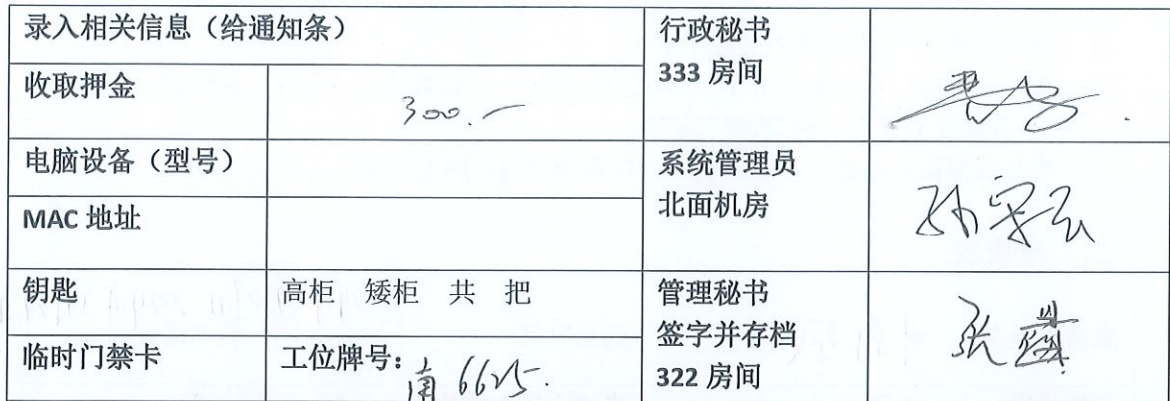 录入相关信息（给通知条）
行政秘书
333 房间
收取押金
300.-
电脑设备（型号）
系统管理员
北面机房
MAC 地址
钥匙
高柜 矮柜 共 把
管理秘书
签字并存档
322 房间
临时门禁卡
工位牌号：南 6625.